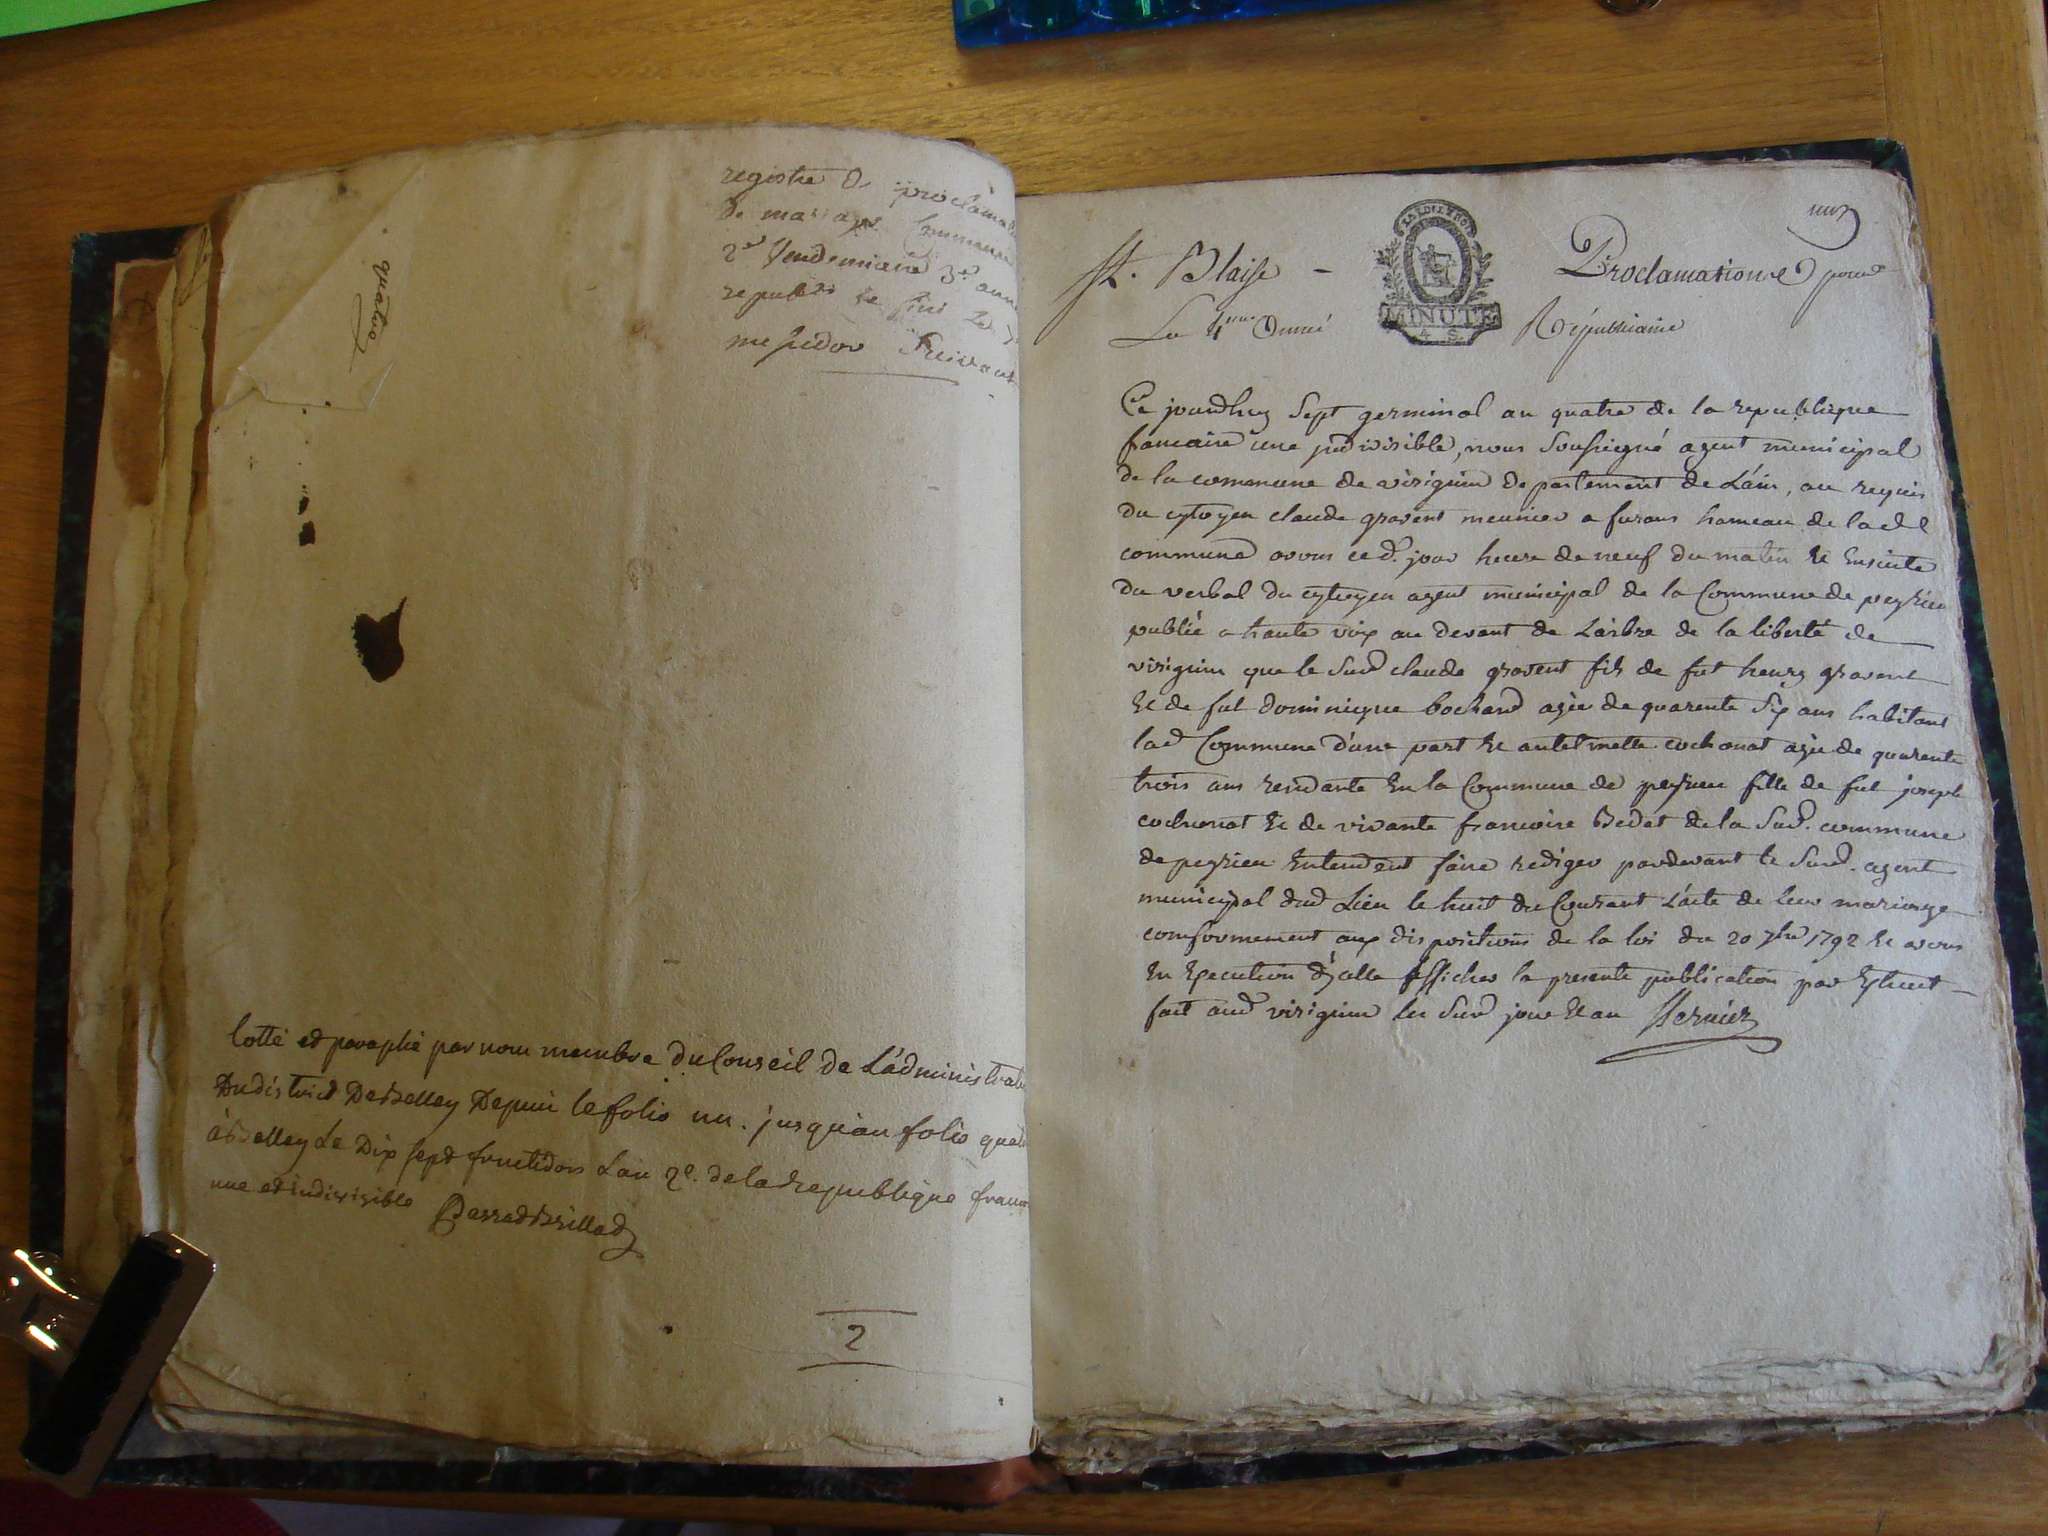 quatre
registre de proclama
de mariage Commencé
2e Vendemiaire 3e ann
republi et fini le
messidor Suivant
Cotté et paraphé par nous membre du Conseil de L'administrat
Du district De Belley Depuis le folio un. jusqu'au folio quat
à Belley Le Dix sept fructidor L'an 2e. de la republique franc
une et indivisible
2
un
St. Blaise - Proclamations pour
La 4me Année Républicaine
MINUTE
4 S.
Ce jourdhuy Sept germinal an quatre de la republique
francaise une indivisible, nous Soussigné agent municipal
de la commune de virignin departement de L'ain, au requis
du cytoyen claude gravent meunier a furans hameau de lad
commune avons ce d. jour heure de neuf du matin et Ensuite
du verbal du cytoyen agent municipal de la Commune de peyzieu
publié a haute voix au devant de L'arbre de la liberté de
virignin que le Sud claude gravent fils de fut henry gravent
et de fut dominique bochard agée de quarente Six ans habitant
lad Commune d'une part et antelmette cochonat agée de quarente
trois ans residante En la Commune de peyzieu fille de fut joseph
cochonat et de vivante francoise Bedat de la Sud. commune
de peyzieu Entendent faire rediger pardevant le Sud. agent
municipal dud Lieu le huit du Courant L'acte de leur mariage
conformement aux dispositions de la loi du 20 7bre 1792 et avons
En Execution d'jcelle affiches la presente publication par Extrait
fait aud virignin les Sud jour et an